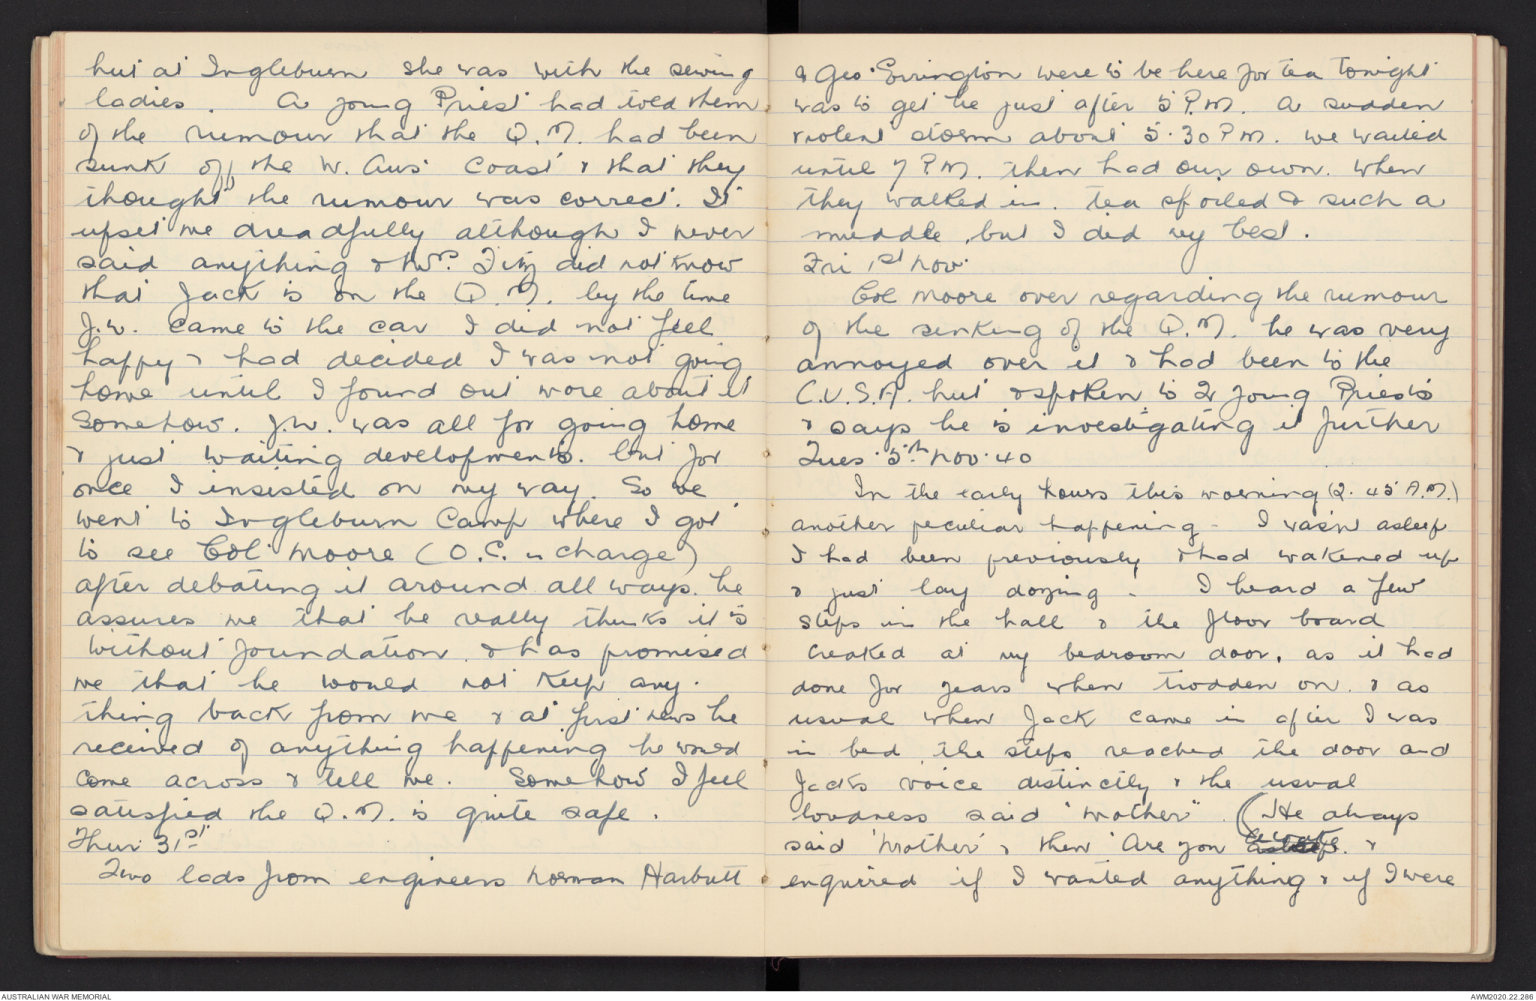 hut at Ingleburn she was with the sewing
ladies. A young Priest had told them
of the rumour that the Q.M. had been
sunk off the W. Aus Coast & that they
thought the rumour was correct. It
upset me dreadfully although I never
said anything & Mrs. Fitz did not know
that Jack is on the Q.M. by the time
J.W. came to the car I did not feel
happy & had decided I was not going
home until I found out more about it
Somehow. J.W. was all for going home
& just waiting developments. but for
once I insisted on my way. So we
went to Ingleburn Camp where I got
to see Col Moore (O.C. in charge)
after debating it around all ways. he
assures me that he really thinks it is
without foundation. & has promised
me that he would not keep any-
thing back from me & at first news he
received of anything happening he would
come across & tell me. Somehow I feel
satisfied the Q.M. is quite safe.
Thur 31st.
Two lads from engineers Norman Harbutt
& Geo. Errington were to be here for tea tonight
was to get he just after 5 P.M. A sudden
violent storm about 5.30 P.M. we waited
until 7 P.M. then had our own. When
they walked in. tea spoiled & such a
muddle, but I did my best.
Fri 1st Nov.
Col Moore over regarding the rumour
of the sinking of the Q.M. he was very
annoyed over it & had been to the
C.U.S.A. hut & spoken to 2 young Priests
& says he is investigating it further
Tues. 5th Nov. 40
In the early hours this morning (2.45 A.M.)
another peculiar happening - I wasn't asleep
I had been previously & had wakened up
& just lay dozing - I heard a few
steps in the hall & the floor board
creaked at my bedroom door. as it had
done for years when trodden on. & as
usual when Jack came in after I was
in bed the steps reached the door and
Jacks voice distinctly & the usual
loudness said "Mother". (He always
said 'Mother' & then 'Are you awake. &
enquired if I wanted anything & if I were
AUSTRALIAN WAR MEMORIAL
AWM2020.22.286